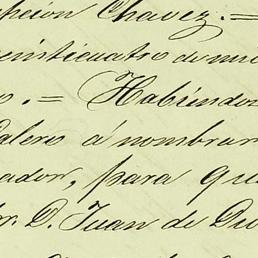 pcion Chavez.=
einticuatro de mi
o.= Habiendos
Valero a nombrar
ador, para que
or. D. Juan de Du